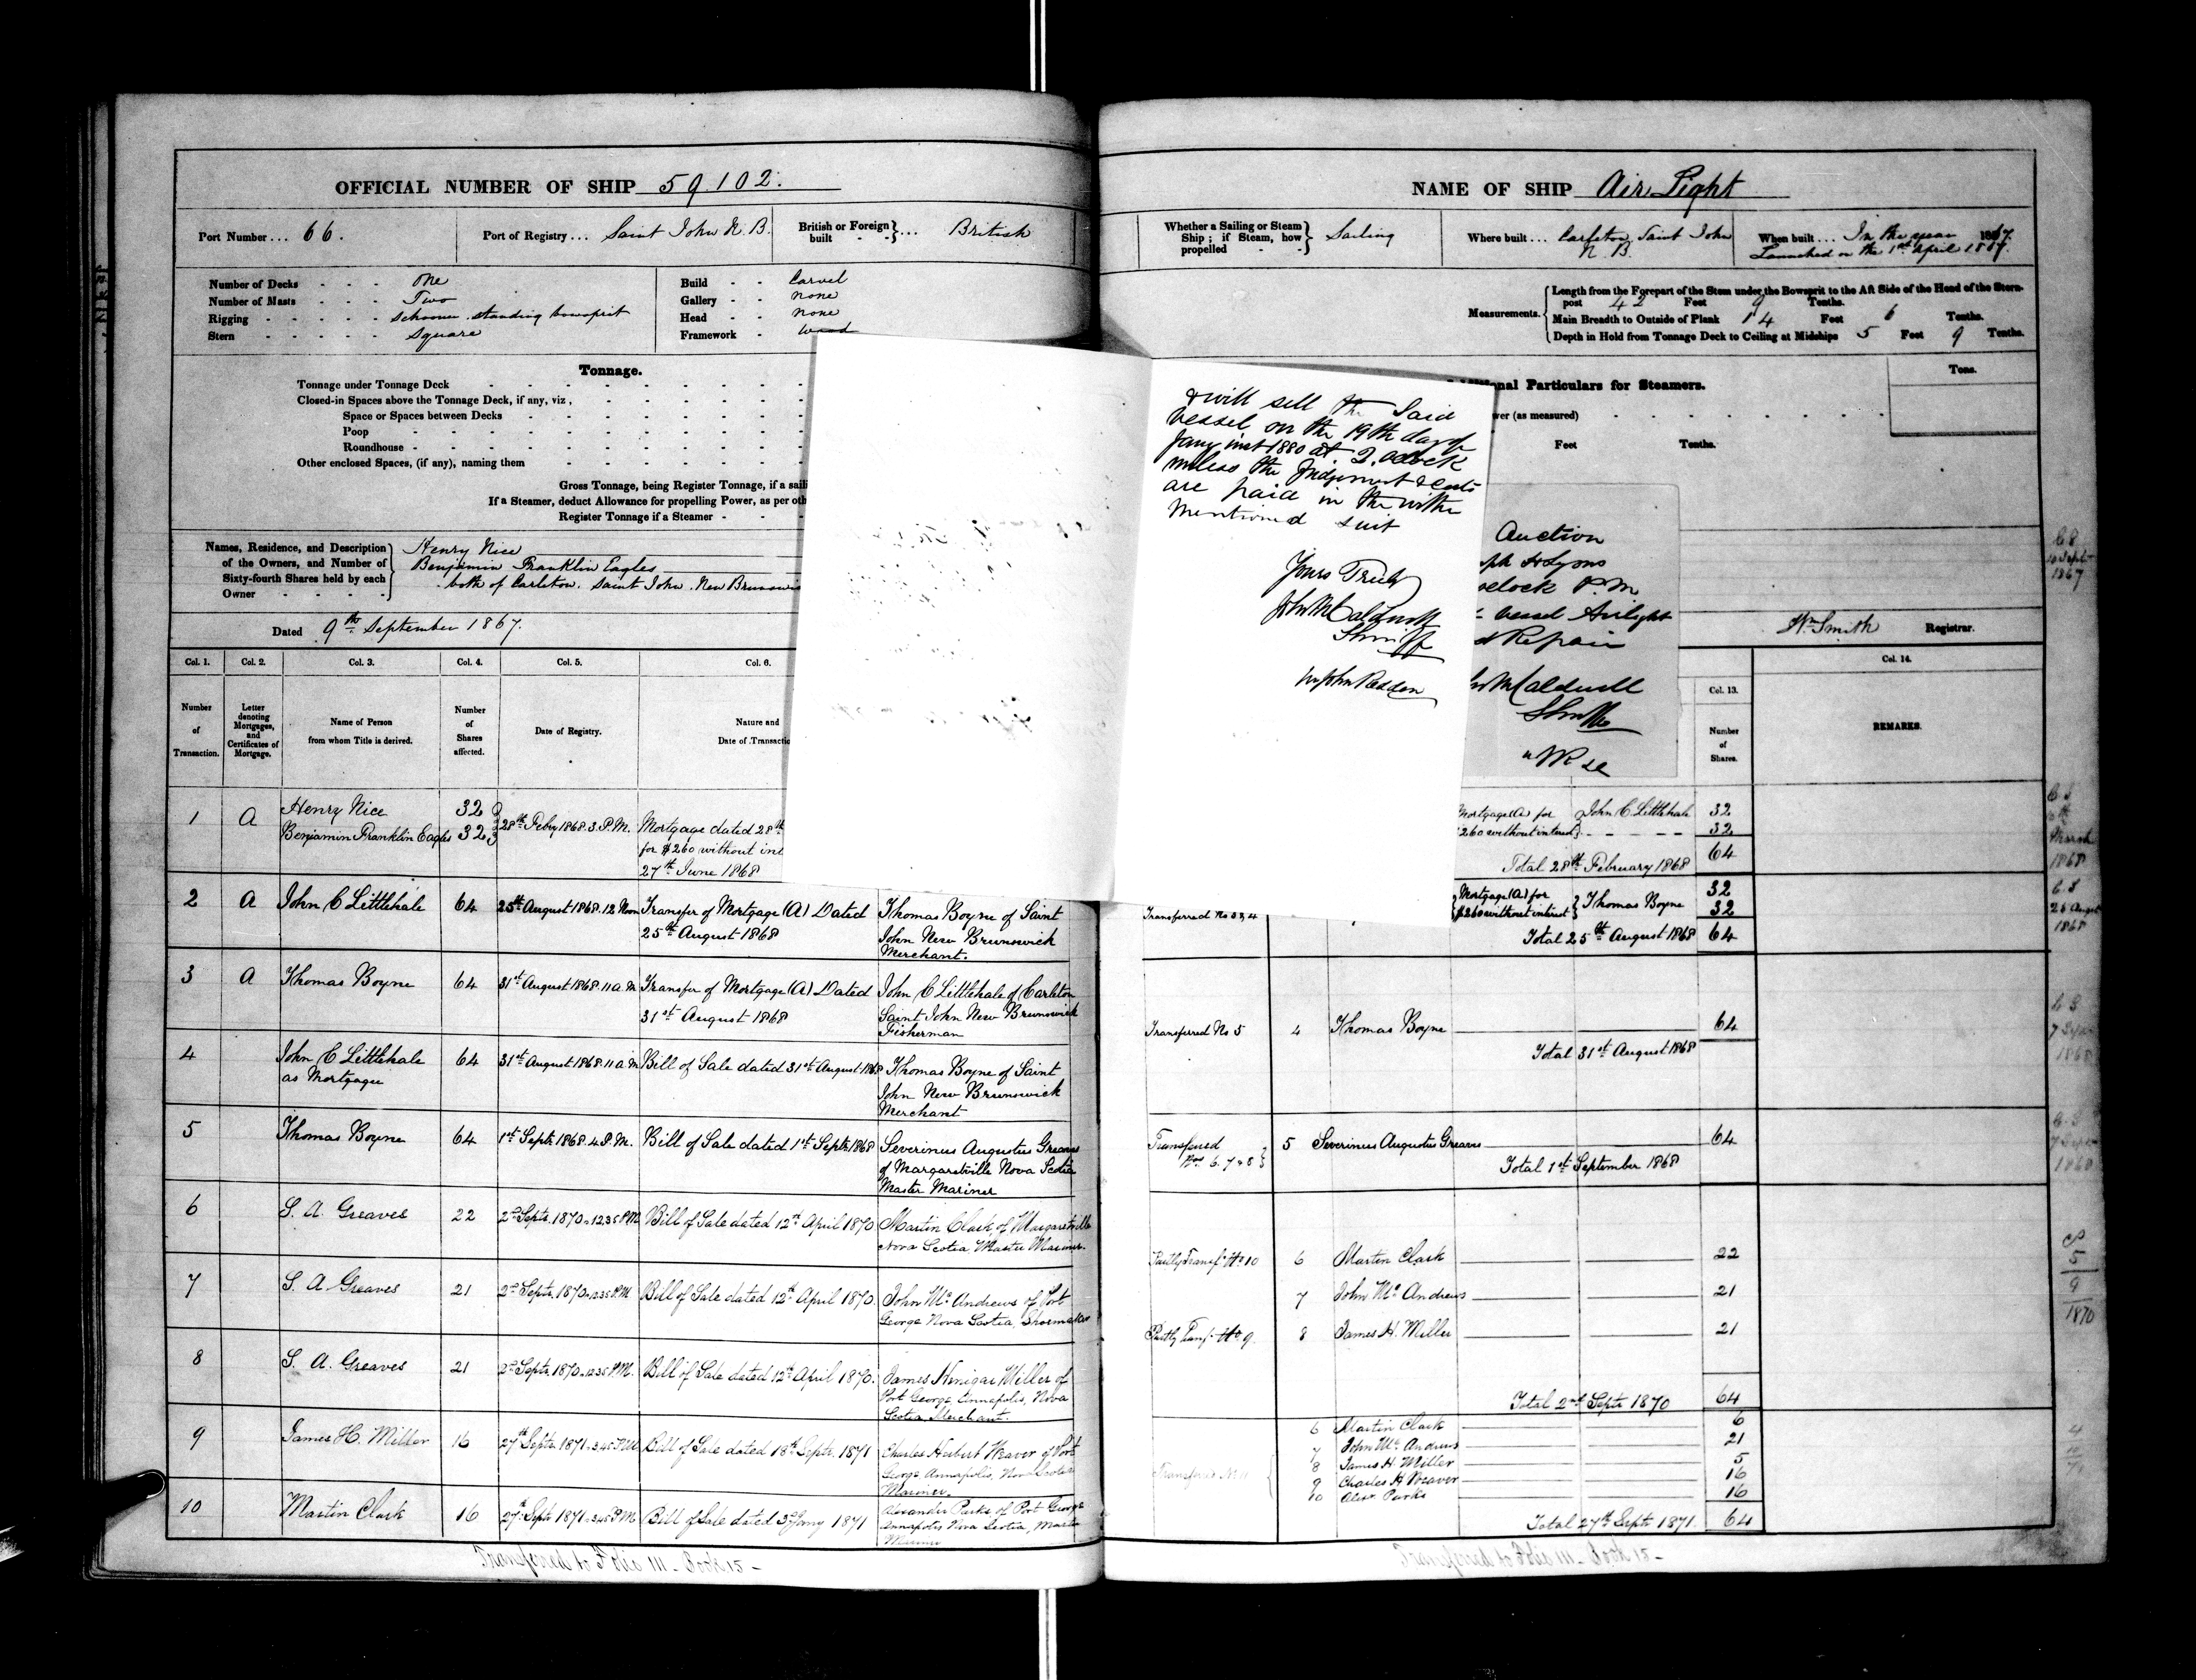 OFFICIAL NUMBER OF SHIP 59.102.
Port Number... 66.
Port of Registry... Saint John N. B.
British or Foreign built - - }... British
Number of Decks - - - one
Number of Masts - - - Two
Rigging - - - - - schooner. standing bowsprit
Stern - - - - - square
Build - - Carvel
Gallery - - none
Head - - none
Framework - wood
Tonnage.
Tonnage under Tonnage Deck
Closed-in Spaces above the Tonnage Deck, if any, viz,
Space or Spaces between Decks
Poop
Roundhouse
Other enclosed Spaces, (if any), naming them
Gross Tonnage, being Register Tonnage, if a sail
If a Steamer, deduct Allowance for propelling Power, as per oth
Register Tonnage if a Steamer
Names, Residence, and Description of the Owners, and Number of Sixty-fourth Shares held by each Owner
Henry Nice
Benjamin Franklin Eagles
both of Carleton. Saint John. New Brunswi
Dated 9th September 1867.
Col. 1. Col. 2. Col. 3. Col. 4. Col. 5. Col. 6.
Number of Transaction.
Letter denoting Mortgages, and Certificates of Mortgage.
Name of Person from whom Title is derived.
Number of Shares affected.
Date of Registry.
Nature and
Date of Transactio
1 A Henry Nice 32
Benjamin Franklin Eagles 32 28th Feby 1868. 3. P.M. Mortgage dated 28th
for $260 without int
27th June 1868
2 A John C Littlehale 64 25th August 1868. 12 Noon Transfer of Mortgage (A) Dated Thomas Boyne of Saint
25th August 1868 John New Brunswick
Merchant.
3 A Thomas Boyne 64 31st August 1868. 11 a.M Transfer of Mortgage (A) Dated John C Littlehale of Carleton
31st August 1868 Saint John New Brunswick
Fisherman
4 John C Littlehale 64 31st August 1868. 11 a.M Bill of Sale dated 31st August 1868 Thomas Boyne of Saint
as Mortgagee John New Brunswick
Merchant
5 Thomas Boyne 64 1st Septr. 1868. 4. P.M. Bill of Sale dated 1st Septr. 1868 Severinus Augustus Greaves
of Margaretville Nova Scotia
Master Mariner
6 S. A. Greaves 22 2nd Septr. 1870. 12.35 P.M Bill of Sale dated 12th April 1870 Martin Clark, of Margaretville
Nova Scotia, Master Mariner.
7 S. A Greaves 21 2nd Septr. 1870. 12.35 P.M Bill of Sale dated 12th April 1870. John Mc Andrews of Port
George Nova Scotia, Shoemaker
8 S. A. Greaves 21 2nd Septr. 1870. 12.35 P.M. Bill of Sale dated 12th April 1870. James Miller of
Port George, Annapolis, Nova
Scotia, Merchant.
9 James H. Miller 16 27th Septr. 1871. 3.45 P.M Bill of Sale dated 18th Septr. 1871 Charles Herbert Weaver of Port
George, Annapolis, Nova Scotia
Mariner.
10 Martin Clark 16 27th Septr 1871. 3.45 P.M Bill of Sale dated 3rd Jany 1871 Alexander Parks of Port George
Annapolis Nova Scotia, Master
Mariner
Transferred to Folio 111 - Book 15 -
NAME OF SHIP Air Light
Whether a Sailing or Steam Ship; if Steam, how propelled - - } Sailing
Where built... Carleton, Saint John
N. B.
When built... In the year 1867.
Launched on the 1st April 1867.
Measurements.
Length from the Forepart of the Stem under the Bowsprit to the Aft Side of the Head of the Stern-
post 42 Feet 9 Tenths.
Main Breadth to Outside of Plank 14 Feet 6 Tenths.
Depth in Hold from Tonnage Deck to Ceiling at Midships 5 Feet 9 Tenths.
onal Particulars for Steamers.
Tons.
wer (as measured)
Feet Tenths.
& will sell the Said
vessel on the 19th day of
Jany inst 1880 at 2. oclock
unless the Judgement & Costs
are paid in the within
mentioned suit
Yours Truly
John M Caldwell
Sheriff
Auction
sph H Lyons
oclock P.M
vessel Airlight
Repair
M Caldwell
Sheriff
Wm Smith Registrar.
Col. 13. Col. 14.
Number of Shares.
REMARKS.
Mortgage (A) for John C Littlehale 32
$260 without interest 32
Total 28th February 1868 64
Transferred No 3 & 4 Mortgage (A) for Thomas Boyne 32
$260 without interest 32
Total 25th August 1868 64
Transferred No 5 4 Thomas Boyne 64
Total 31st August 1868
Transferred
Nos 6. 7 & 8 5 Severinus Augustus Greaves 64
Total 1st September 1868
Partly Transf. No 10 6 Martin Clark 22
7 John Mc Andrews 21
Partly Transf. No 9. 8 James H. Miller 21
Total 2nd Septr 1870 64
6 Martin Clark 6
7 John Mc Andrews 21
8 James H. Miller 5
9 Charles H Weaver 16
10 Alexr. Parks 16
Total 27th Septr. 1871. 64
Transferred to Folio 111 - Book 15 -
10 Sept
1867
March
1868
25 Augst
1868
7 Sept
1868
5
9
1870